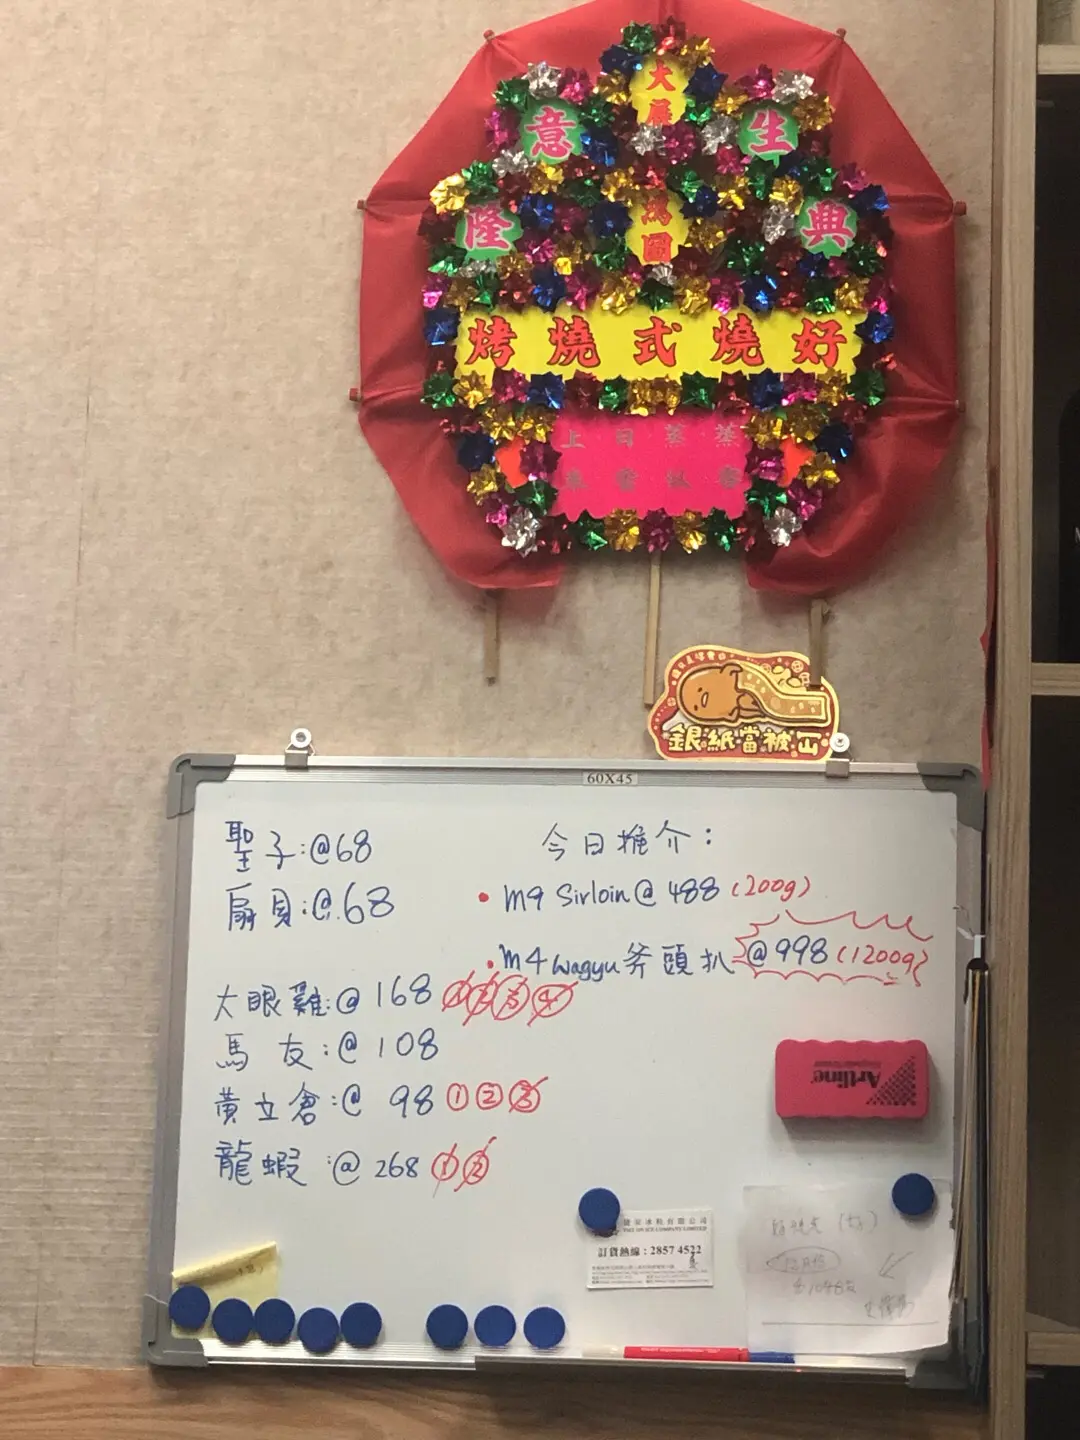 大展
鴻圖
意 生
隆 興
烤燒式燒好
銀紙當被冚
60X45
聖子:@68
扇貝:@68
今日推介:
• M9 Sirloin @ 488 (200g)
• M4 Wagyu斧頭扒 @998 (1200g)
大眼雞:@ 168 ① ② ③ ④
馬 友:@ 108
黃立倉:@ 98 ① ② ③
龍蝦 :@ 268 ① ②
Artline
訂貨熱線:2857 4522